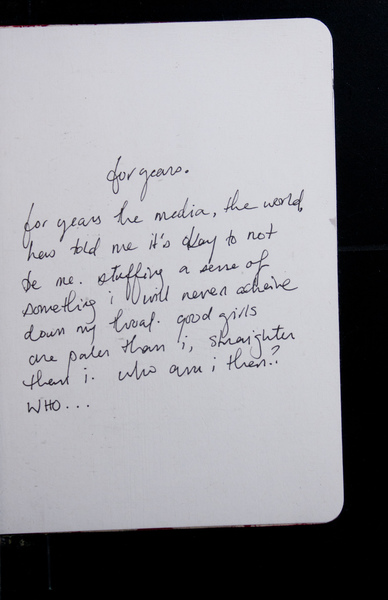 for years.
for years the media, the world,
has told me it's okay to not
be me. stuffing a sense of
something i will never acheive
down my throat. good girls
are paler than i, straighter
than i. who am i then?
WHO...